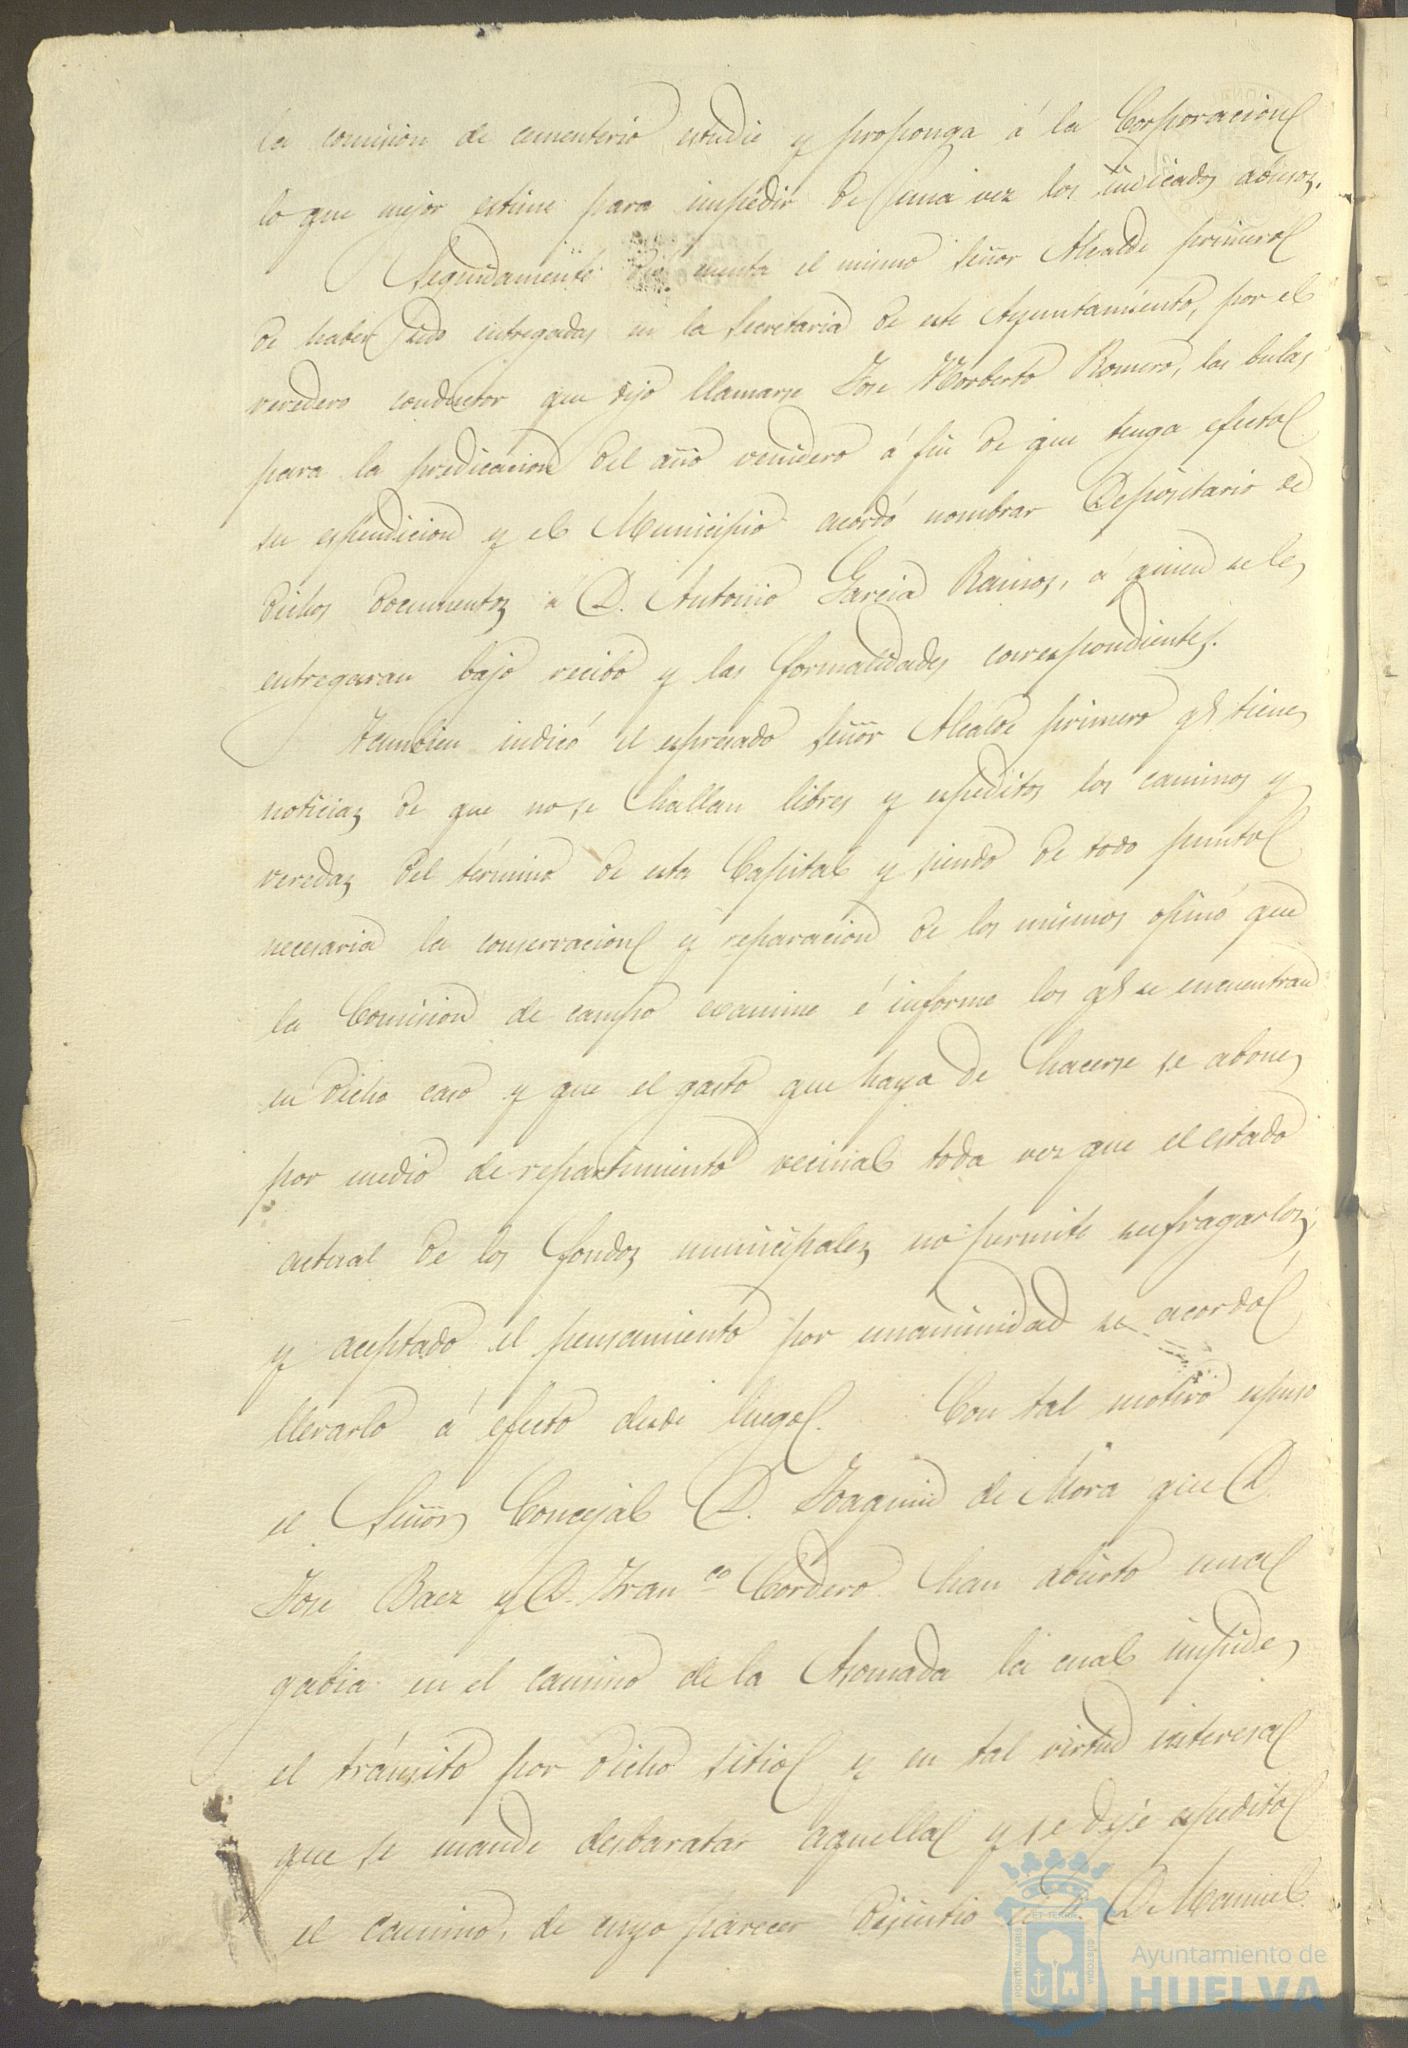 la comision de cementerio estudie y proponga á la Corporacion
lo que mejor estime para impedir de una vez los indicados abusos.
Seguidamente dió cuenta el mismo Señor Alcalde primero
de haber sido entregadas en la Secretaria de este Ayuntamiento, por el
veredero conductor que dijo llamarse Jose Norberto Romero, las bulas
para la predicacion del año venidero á fin de que tenga efecto
su espendicion y el Municipio acordó nombrar Depositario de
dichos documentos á D. Antonio Garcia Ramos, á quien se le
entregaran bajo recibo y las formalidades correspondientes.
Tambien indicó el espresado Señor Alcalde primero qe tiene
noticias de que no se hallan libres y espeditos los caminos y
veredas del término de esta Capital y siendo de todo punto
necesaria la conservacion y reparacion de los mismos opinó que
la Comision de campo examine é informe los qe se encuentran
en dicho caso y que el gasto que haya de hacerse se abone
por medio de repartimiento vecinal toda vez que el estado
actual de los fondos municipales no permite sufragarlos;
y aceptado el pensamiento por unanimidad se acordó
llevarlo á efecto desde luego. Con tal motivo espuso
el Señor Concejal D. Joaquin de Mora que D.
Jose Baez y D. Franco Cordero han abierto una
gabia en el camino de la Asomada la cual impide
el tránsito por dicho sitio y en tal virtud interesa
que se mande desbaratar aquella y se deje espedito
el camino, de cuyo parecer disintió el Sr. D. Manuel
Ayuntamiento de
HUELVA
PORTUS MARIS
ET TERRAE
CUSTODIA